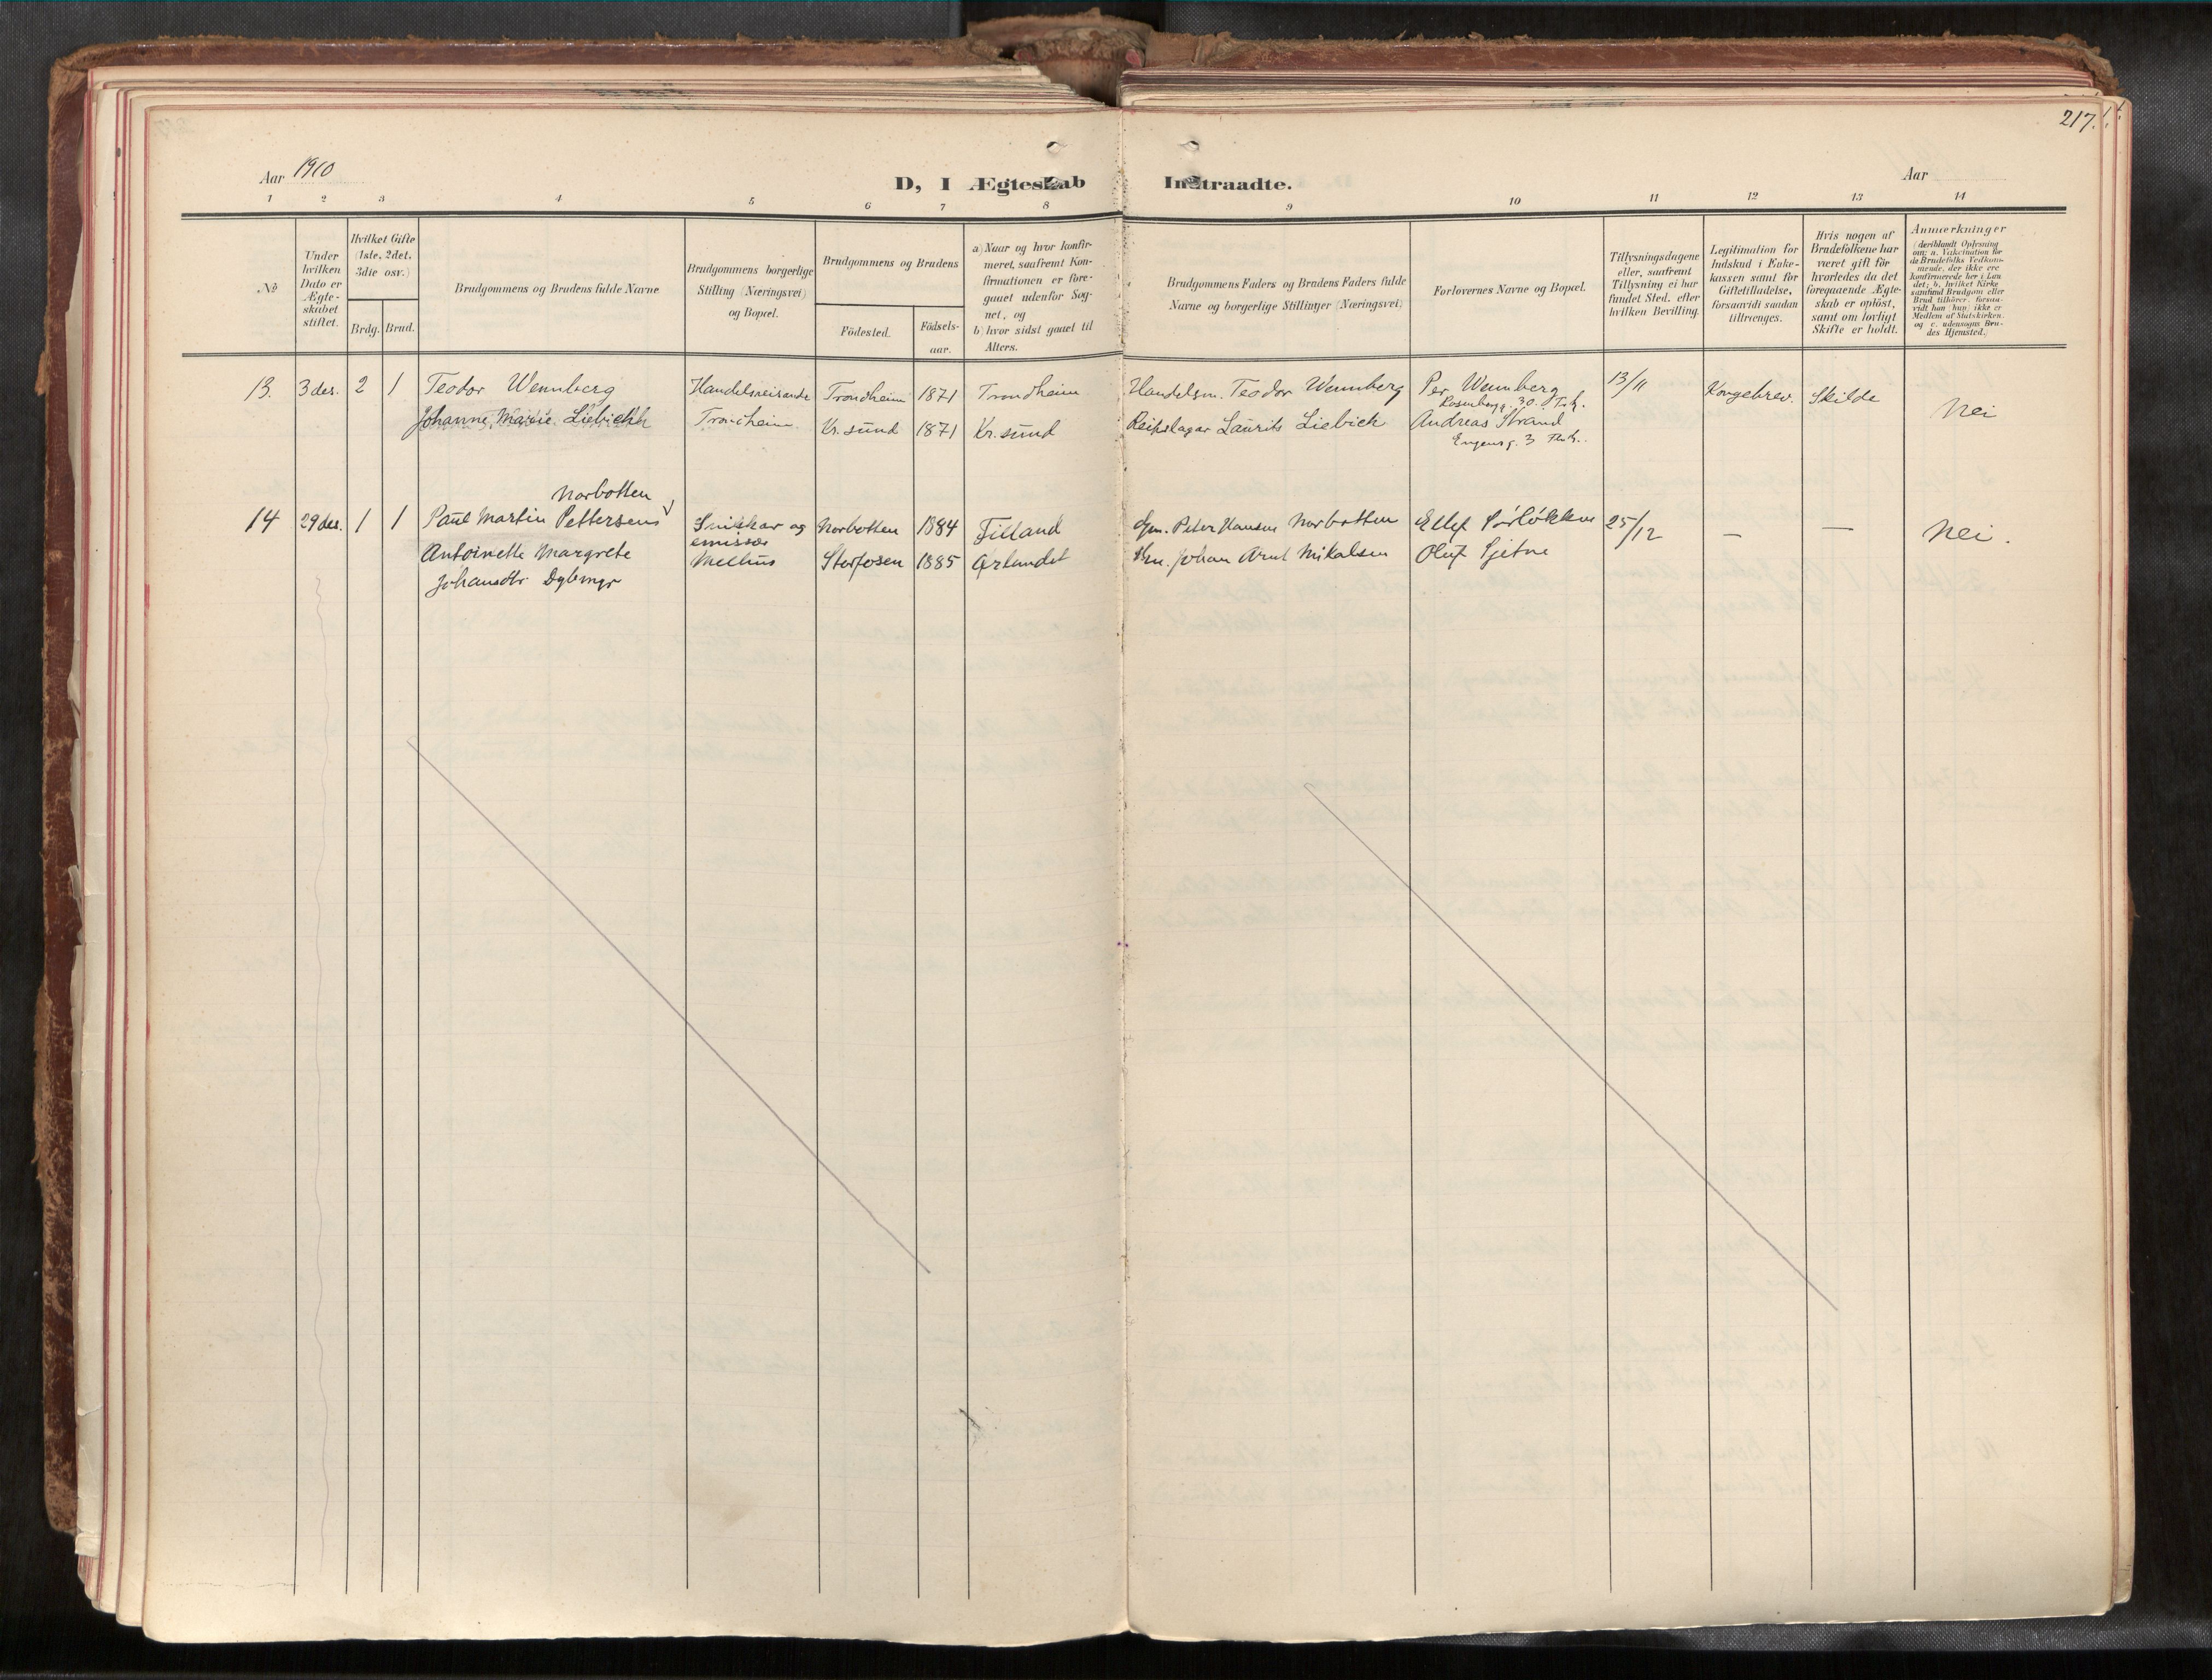 217.
Aar 1910
D, I Ægteskab Indtraadte.
Aar
1 2 3 4 5 6 7 8 9 10 11 12 13 14
No
Under
hvilken
Dato er
Ægte-
skabet
stiftet.
Hvilket Gifte
(1ste, 2det,
3die osv.)
Brdg. Brud.
Brudgommens og Brudens fulde Navne
Brudgommens borgerlige
Stilling (Næringsvei)
og Bopæl.
Brudgommens og Brudens
Födested.
Födsels-
aar.
a) Naar og hvor konfir-
meret, saafremt Kon-
firmationen er fore-
gaaet udenfor Sog-
net, og
b) hvor sidst gaaet til
Alters.
Brudgommens Faders og Brudens Faders fulde
Navne og borgerlige Stillinger (Næringsvei)
Forlovernes Navne og Bopæl.
Tillysningsdagene
eller, saafremt
Tillysning ei har
fundet Sted, efter
hvilken Bevilling.
Legitimation for
Indskud i Enke-
kassen samt for
Giftetilladelse,
forsaavidt saadan
tiltrænges.
Hvis nogen af
Brudefolkene har
været gift för
hvorledes da det
foregaaende Ægte-
skab er oplöst,
samt om lovligt
Skifte er holdt.
Anmærkninger
(deriblandt Oplysning
om: a. Vakcination for
de Brudefolks Vedkom-
mende, der ikke ere
konfirmerede her i Lan
det; b. hvilket Kirke
samfund Brudgom eller
Brud tilhörer, forsaa-
vidt han (hun) ikke er
Medlem af Statskirken.
og c. udensogns Bru-
des Hjemsted.)
13. 3 des. 2 1 Teodor Wennberg Handelsreisande Trondheim 1871 Trondheim Handelsm. Teodor Wennberg Per Wennberg 13/11 Kongebrev. Skilde Nei
Rosenborgg. 30. Trh.
Johanne Marie Liebich Trondheim Kr.sund 1871 Kr.sund Reipslagar Laurits Liebich Andreas Strand
3
Norbotten
14 29 des. 1 1 Paul Martin Pettersen Snikkar og Norbotten 1884 Filland Peter Hansen Norbotten 25/12 — — Nei.
emissær
Antoinette Margrete Melhus Storfosen 1885 Ørlandet Johan Arnt Mikalsen Oluf Gjetne
Johansdtr.